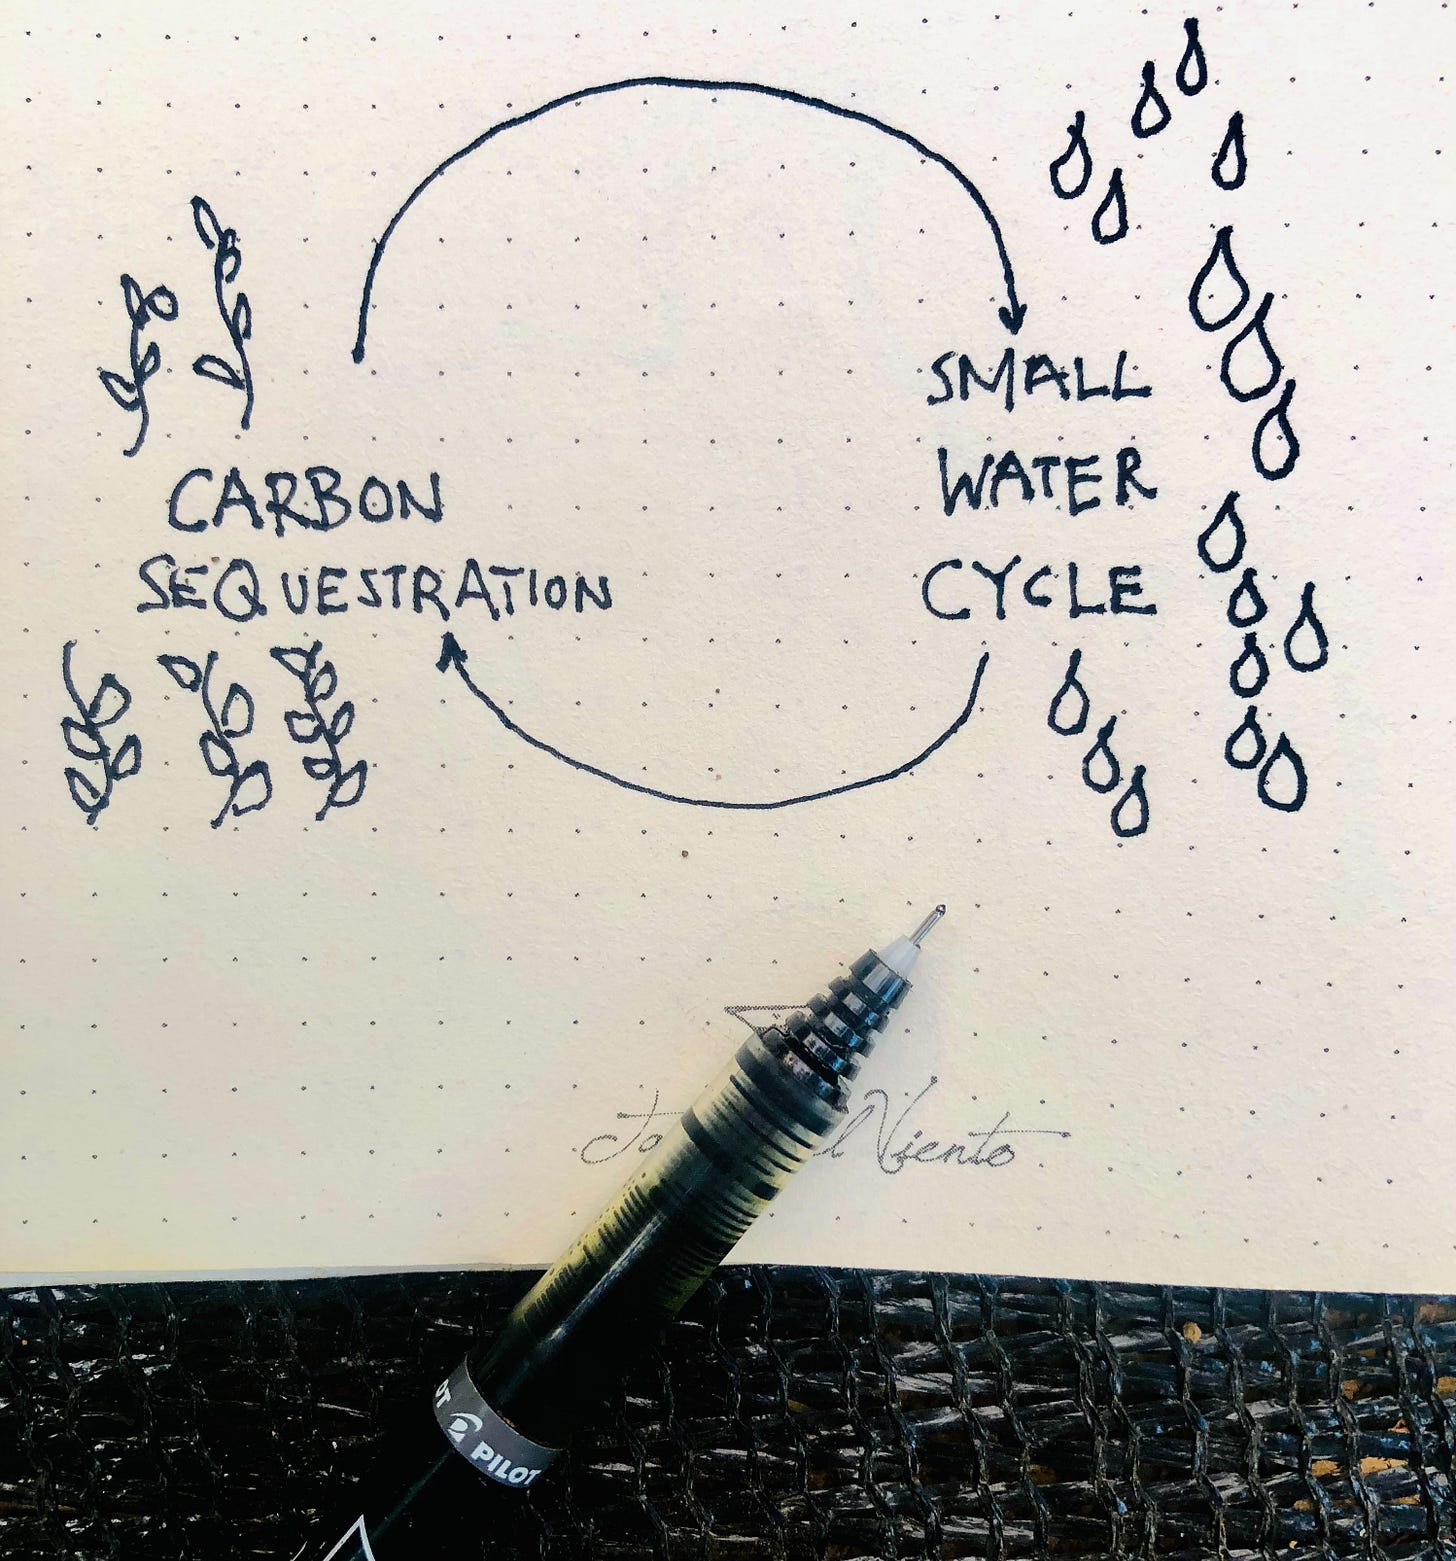 CARBON
SEQUESTRATION
SMALL
WATER
CYCLE
Viento
PILOT